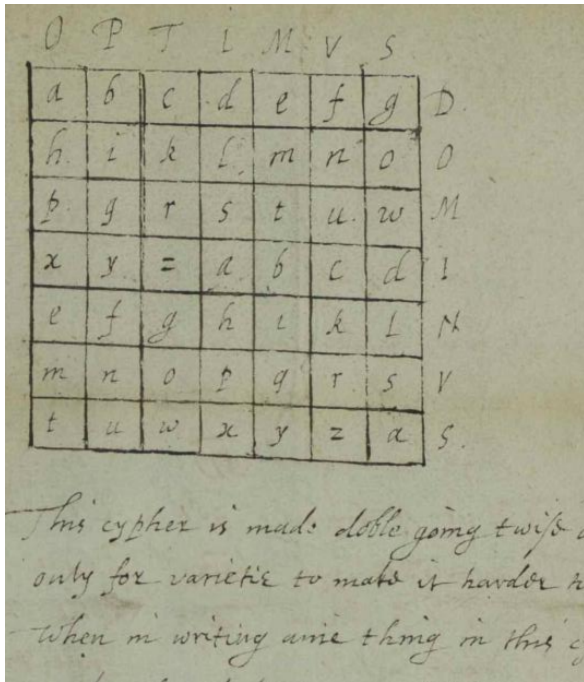 O P T I M V S
a b c d e f g D.
h i k l m n o O
p q r s t u w M
x y = a b c d I
e f g h i k l N
m n o p q r s V
t u w x y z a S.
This cypher is made doble going twise
only for varietie to make it harder
When in writing anie thing in this